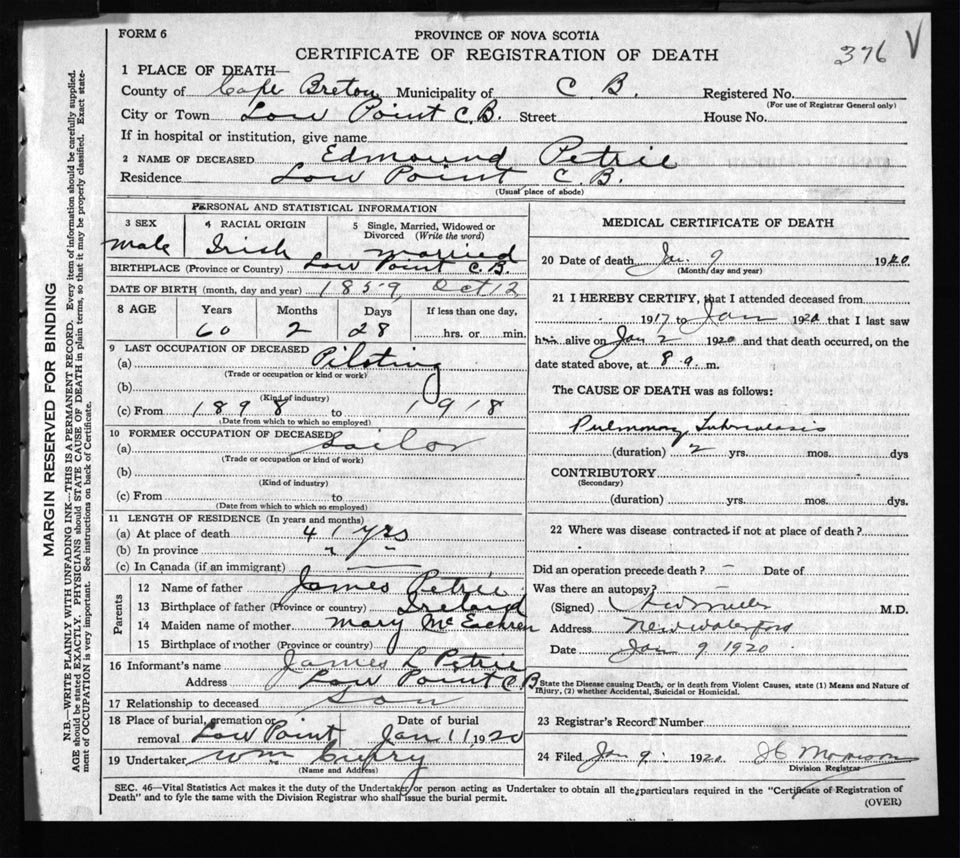 FORM 6
PROVINCE OF NOVA SCOTIA
CERTIFICATE OF REGISTRATION OF DEATH
376 V
1 PLACE OF DEATH—
County of Cape Breton Municipality of C B. Registered No.
(For use of Registrar General only)
City or Town Low Point C.B. Street House No.
If in hospital or institution, give name
2 NAME OF DECEASED Edmound Petrie
Residence Low Point C.B.
(Usual place of abode)
PERSONAL AND STATISTICAL INFORMATION
3 SEX Male
4 RACIAL ORIGIN Irish
5 Single, Married, Widowed or Divorced (Write the word) Married
BIRTHPLACE (Province or Country) Low Point C.B.
DATE OF BIRTH (month, day and year) 1859 Oct 12
8 AGE Years Months Days If less than one day,
60 2 28 hrs. or min.
9 LAST OCCUPATION OF DECEASED
(a) Piloting
(Trade or occupation or kind or work)
(b)
(Kind of industry)
(c) From 1898 to 1918
(Date from which to which so employed)
10 FORMER OCCUPATION OF DECEASED
(a) Sailor
(Trade or occupation or kind of work)
(b)
(Kind of industry)
(c) From to
(Date from which to which so employed)
11 LENGTH OF RESIDENCE (In years and months)
(a) At place of death 41 yrs
(b) In province " "
(c) In Canada (if an immigrant) —
Parents
12 Name of father James Petrie
13 Birthplace of father (Province or country) Ireland
14 Maiden name of mother Mary McEachren
15 Birthplace of mother (Province or country)
16 Informant's name James L Petrie
Address Low Point C.B
17 Relationship to deceased Son
18 Place of burial, cremation or removal Low Point Date of burial Jan 11, 1920
19 Undertaker Wm
(Name and Address)
MEDICAL CERTIFICATE OF DEATH
20 Date of death Jan. 9 1920
(Month/day and year)
21 I HEREBY CERTIFY, that I attended deceased from
1917 to Jan 1920 that I last saw
him alive on Jan 2 1920 and that death occurred, on the
date stated above, at 8 a. m.
The CAUSE OF DEATH was as follows:
Pulmonary Tuberculosis
(duration) 2 yrs. mos. dys
CONTRIBUTORY
(Secondary)
(duration) yrs. mos. dys.
22 Where was disease contracted if not at place of death?
Did an operation precede death? — Date of
Was there an autopsy? —
(Signed) M.D.
Address New Waterford
Date Jan 9 1920
State the Disease causing Death, or in death from Violent Causes, state (1) Means and Nature of
Injury, (2) whether Accidental, Suicidal or Homicidal.
23 Registrar's Record Number
24 Filed Jan 9 1920
Division Registrar
SEC. 46—Vital Statistics Act makes it the duty of the Undertaker or person acting as Undertaker to obtain all the particulars required in the "Certificate of Registration of
Death" and to fyle the same with the Division Registrar who shall issue the burial permit.
(OVER)
MARGIN RESERVED FOR BINDING
N.B.—WRITE PLAINLY WITH UNFADING INK—THIS IS A PERMANENT RECORD. Every item of information should be carefully supplied.
AGE should be stated EXACTLY. PHYSICIANS should STATE CAUSE OF DEATH in plain terms, so that it may be properly classified. Exact state-
ment of OCCUPATION is very important. See instructions on back of Certificate.